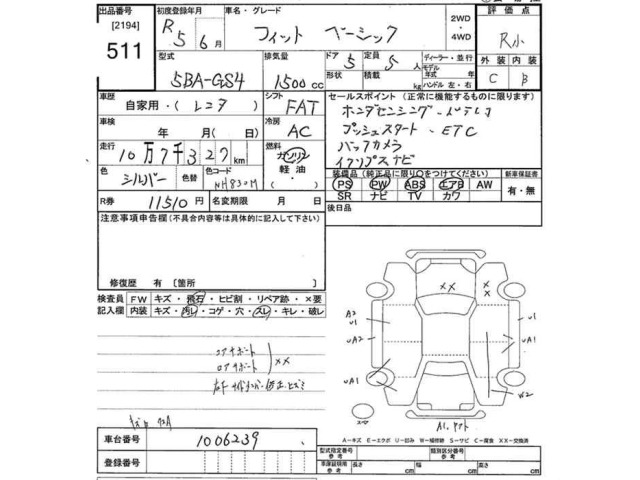 出品番号 初度登録年月 車名・グレード 評価点
[2194] R 5 6月 フィット ベーシック 2WD ・ 4WD R小
511 型式 排気量 ドア 定員 ディーラー・並行 外装 内装
5BA-GS4 1500cc 5 5人 モデル年式 年 C B
形状 積載 kg ハンドル 左・右
車歴 シフト セールスポイント (正常に機能するものに限ります)
自家用・(レンタ) FAT ホンダセンシング
車検 冷房 プッシュスタート ETC
年 月( 日) AC バックカメラ
走行 燃料 ナビ
10万7千327km ガソリン 軽油
色 シルバー 色替 色コード NH830M
装備品 (純正品に限り○をつけてください) 新車保証書
PS PW ABS エアB AW 有・無
SR ナビ TV カワ
R券 11510円 名変期限 月 日 後日品
注意事項申告欄(不具合内容等は具体的に記入して下さい)
修復歴 有 [箇所 ]
検査員 FW キズ・飛石・ヒビ割・リペア跡・×要
記入欄 内装 キズ・汚レ・コゲ・穴・スレ・キレ・破レ
コアサポート
ロアサポート XX
XX
A2 U1
UA2
UA1
U1
UA2
UA1
W2
A1
車台番号 1006239
A-キズ E-エクボ U-凹み W-補修跡 S-サビ C-腐食 XX-交換済
型式指定番号 類別区分番号
車庫証明用 長さ cm 幅 cm 高さ cm